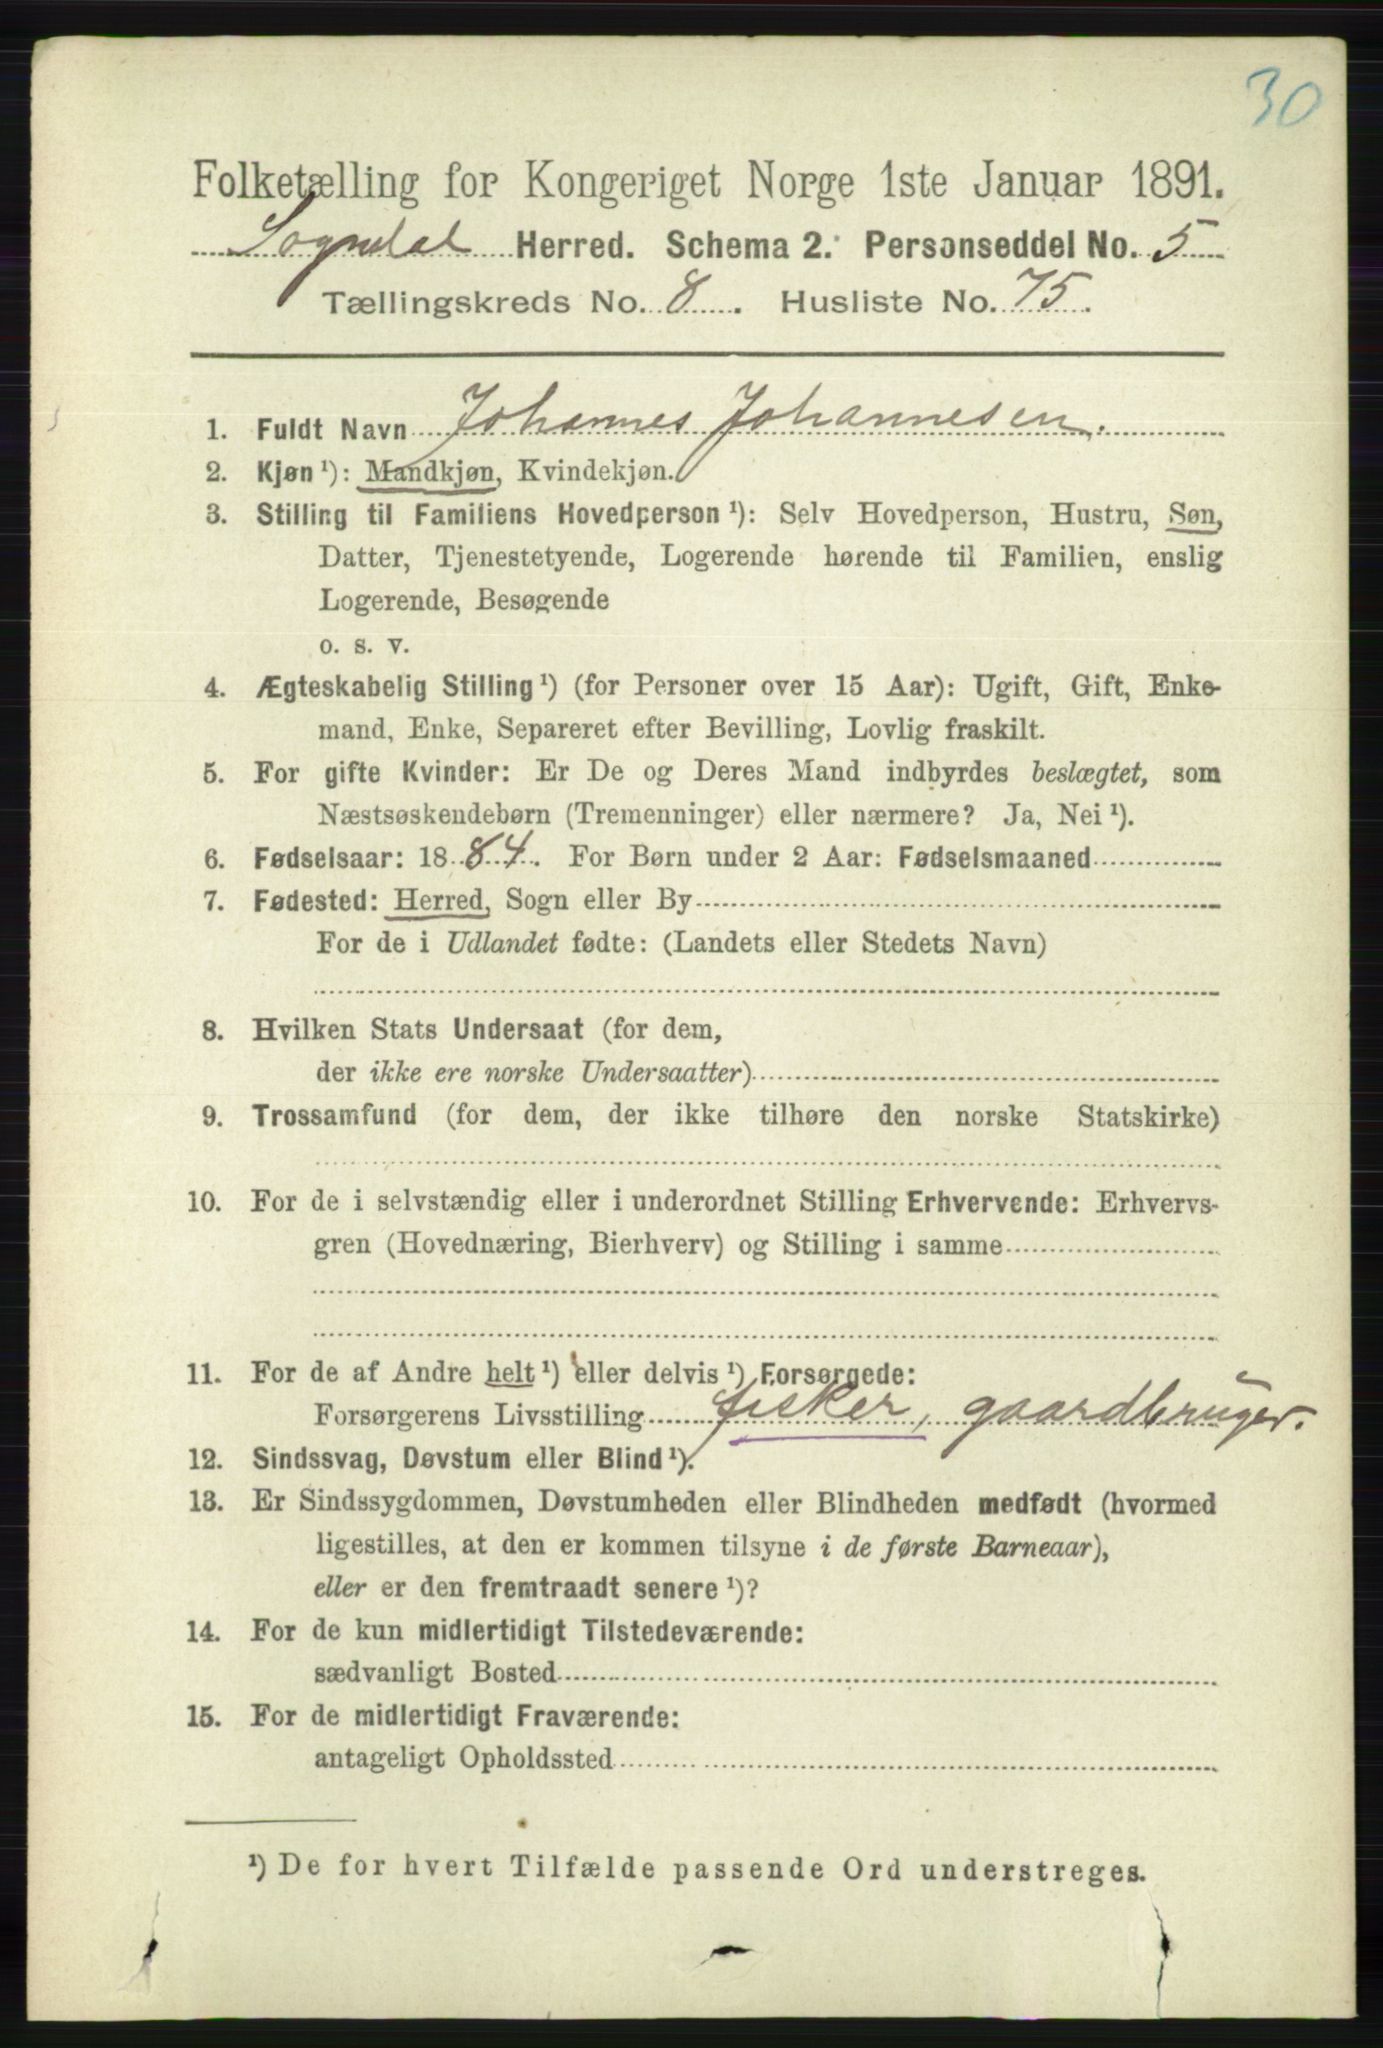 30
Folketælling for Kongeriget Norge 1ste Januar 1891.
Sogndal Herred. Schema 2. Personseddel No. 5
Tællingskreds No. 8. Husliste No. 75.
1. Fuldt Navn Johannes Johannesen.
2. Kjøn ¹): Mandkjøn, Kvindekjøn.
3. Stilling til Familiens Hovedperson ¹): Selv Hovedperson, Hustru, Søn,
Datter, Tjenestetyende, Logerende hørende til Familien, enslig
Logerende, Besøgende
o. s. v.
4. Ægteskabelig Stilling ¹) (for Personer over 15 Aar): Ugift, Gift, Enke-
mand, Enke, Separeret efter Bevilling, Lovlig fraskilt.
5. For gifte Kvinder: Er De og Deres Mand indbyrdes beslægtet, som
Næstsøskendebørn (Tremenninger) eller nærmere? Ja, Nei ¹).
6. Fødselsaar: 1884. For Børn under 2 Aar: Fødselsmaaned
7. Fødested: Herred, Sogn eller By
For de i Udlandet fødte: (Landets eller Stedets Navn)
8. Hvilken Stats Undersaat (for dem,
der ikke ere norske Undersaatter)
9. Trossamfund (for dem, der ikke tilhøre den norske Statskirke)
10. For de i selvstændig eller i underordnet Stilling Erhvervende: Erhvervs-
gren (Hovednæring, Bierhverv) og Stilling i samme
11. For de af Andre helt ¹) eller delvis ¹) Forsørgede:
Forsørgerens Livsstilling fisker, gaardbruger.
12. Sindssvag, Døvstum eller Blind ¹).
13. Er Sindssygdommen, Døvstumheden eller Blindheden medfødt (hvormed
ligestilles, at den er kommen tilsyne i de første Barneaar),
eller er den fremtraadt senere ¹)?
14. For de kun midlertidigt Tilstedeværende:
sædvanligt Bosted
15. For de midlertidigt Fraværende:
antageligt Opholdssted
¹) De for hvert Tilfælde passende Ord understreges.